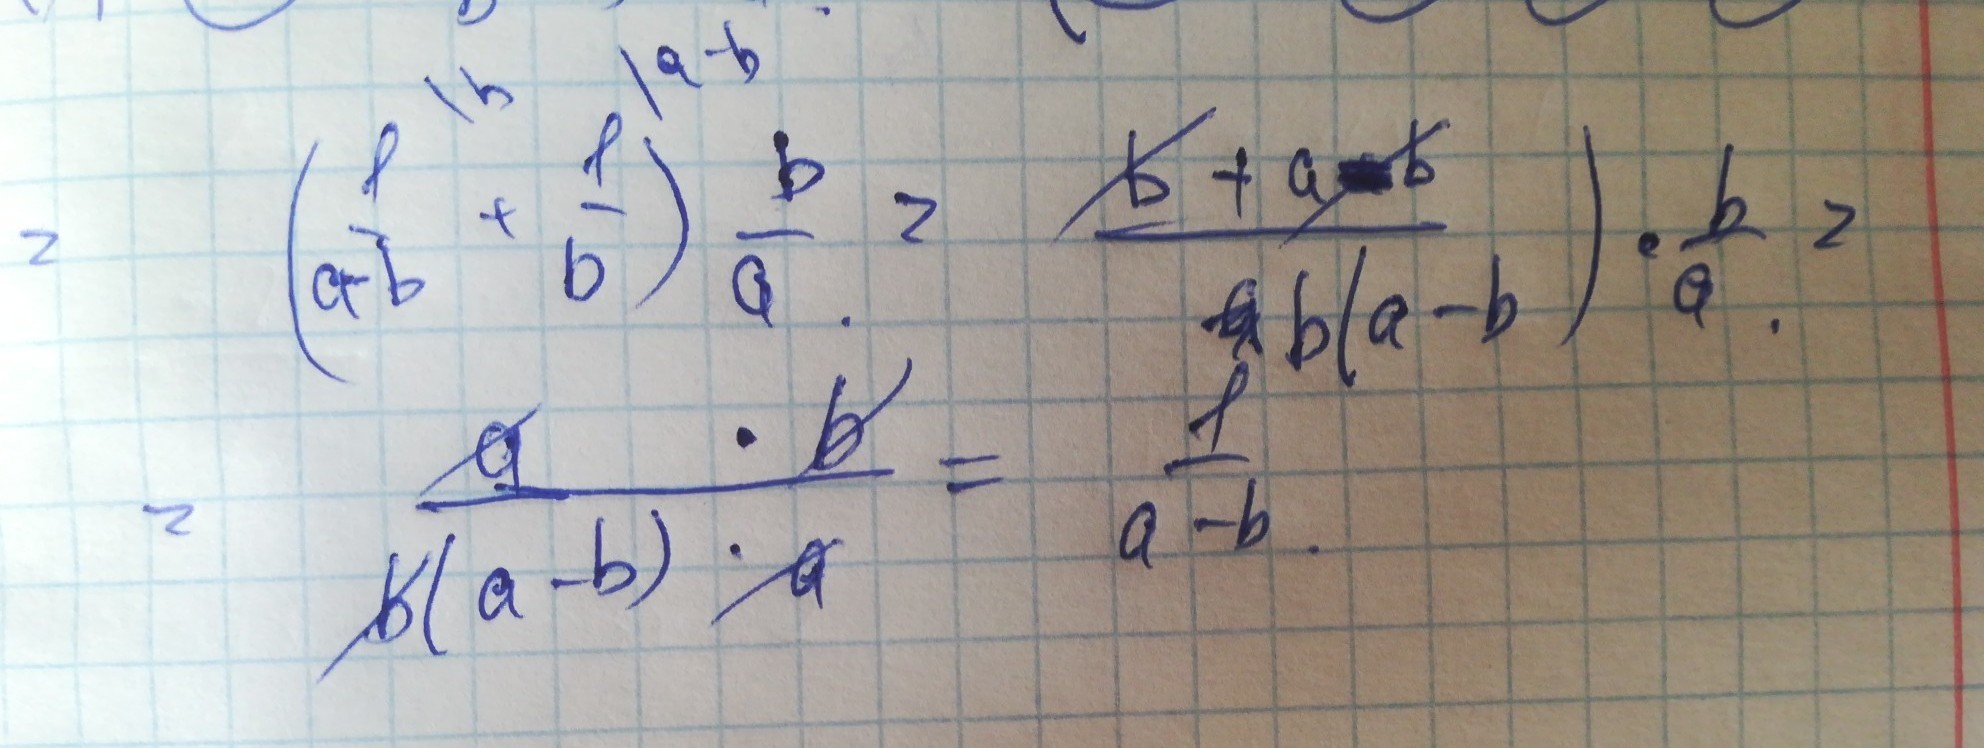 = (1/(a-b) \b + 1/b \a-b) b/a. = (b + a - b)/(b(a-b))) · b/a. =
= (a · b)/(b(a-b) · a) = 1/(a-b).